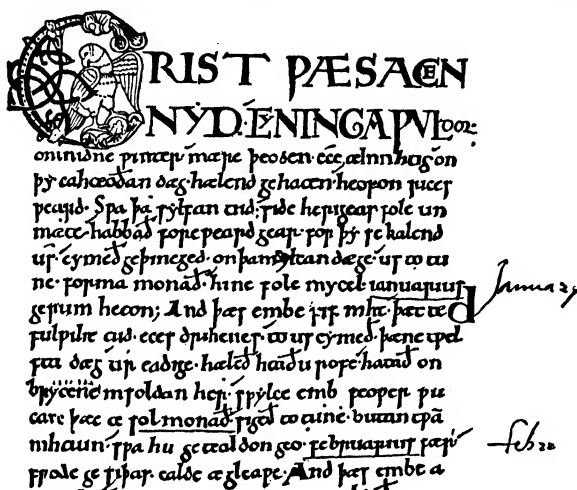 CRIST ǷÆS ACEN
NẎD·CẎNINGA ǷVLDOR·
onmidne ƿinter mære þeoden· éce ælmihtig on
þẏ eahteoðan dæg hælend gehaten· heofon rices
ƿeard· Sƿa þa sẏlfan tiid· side herigeas folc un
mæte· habbað foreƿeard gear· for þẏ se kalend
us· cẏmeð geþincged· on þam ẏlcan dæge· us to tu
ne· forma monað· hine folc mycel ianuarius
gerum heton; And þæs embe fif niht· þætte
fulƿiht tiid· eces drihtnes· to us cẏmeð· þæne tƿel
fta dæg tir eadige· hæleð heaðu rofe· hatað on
brẏtene in foldan her· sƿẏlce emb feoƿer ƿu
can· þæt te sol monað sigeð to tune· butan tƿa
nihtum· sƿa hit getealdon geo· februarius fær·
frode ge siþas· ealde ægleaƿe· And þæs embe a
January
feb